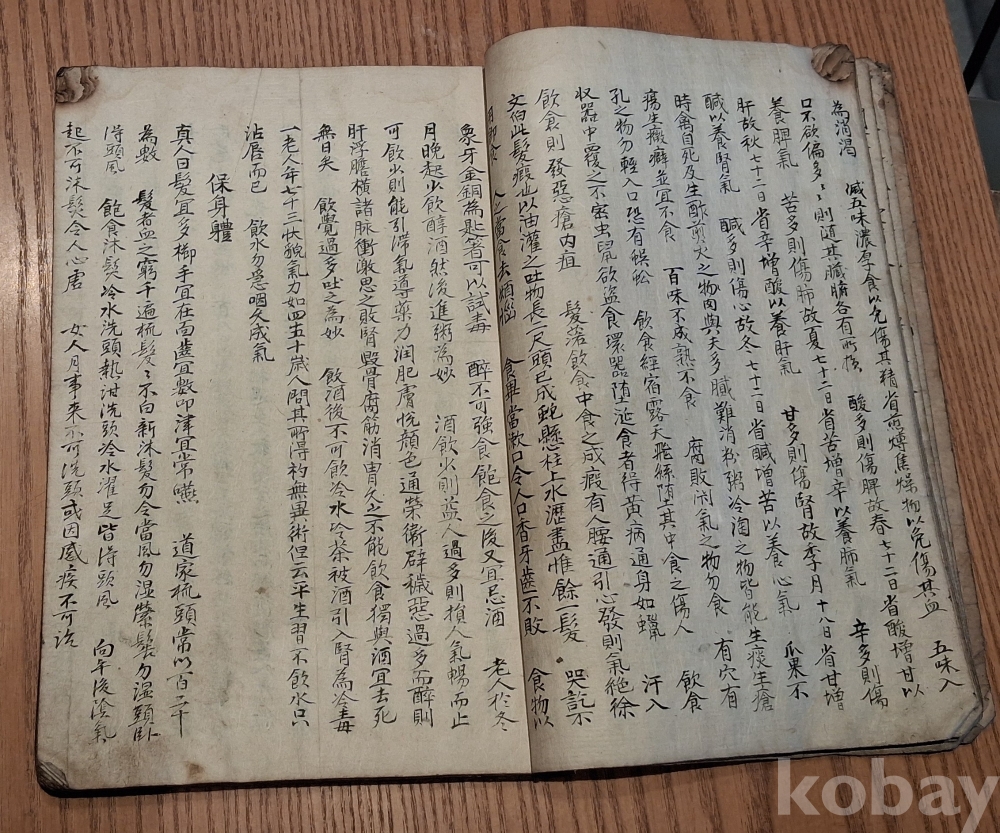 為消渴 減五味濃厚食以免傷其精省煎煿焦燥物以免傷其血 五味入
口不欲偏多〻則隨其臟腑各有所損 酸多則傷脾故春七十二日省酸增甘以
養脾氣 苦多則傷肺故夏七十二日省苦增辛以養肺氣 辛多則傷
肝故秋七十二日省辛增酸以養肝氣 甘多則傷腎故季月十八日省甘增
鹹以養腎氣 鹹多則傷心故冬七十二日省鹹增苦以養心氣 瓜果不
時禽自死及生酢煎火之物肉與夫多臟難消粉粥冷淘之物皆能生痰生瘡
瘍生癥癖並宜不食 百味不成熟不食 腐敗閉氣之物勿食 有穴有
孔之物勿輕入口恐有蜈蚣 飲食經宿露天飛絲堕其中食之傷人 飲食
収器中覆之不密虫鼠欲盜食環器堕涎食者得黃病通身如蠟 汗入
飲食則發惡瘡內疽 髮落飲食中食之成瘕有人腰通引心發則氣絕徐
文伯此髮瘕也以油灌之吐物長二尺頭已成蛇懸柱上水瀝盡惟餘一髮 哭訖不
人之當食去煩惱 食畢當漱口令人口香牙齒不敗 食物以
象牙金銅為匙箸可以試毒 醉不可強食飽食之後又宜忌酒 老人於冬
月晚起少飲醇酒然後進粥為妙 酒飲少則益人過多則損人氣暢而止
可飲少則能引滯氣導藥力润肥膚悅顏色通榮衛辟穢惡過多而醉則
肝浮膽橫諸脉衝激思之敗腎毀骨腐筋消胃久之不能飲食獨與酒宜去死
無日矣 飲覺過多吐之為妙 飲酒後不可飲冷水冷茶被酒引入腎為冷毒
一老人年七十三狀貌氣力如四五十歲人問其所得初無異術但云平生習不飲水只
沾唇而已 飲水勿急咽久成氣
保身軆
真人曰髮宜多櫛手宜在面齒宜數叩津宜常嚥 道家梳頭常以百二十
為數 髮者血之窮千遍梳髮〻不白新沐髮勿令當風勿湿縈髻勿湿頭臥
得頭風 飽食沐髮冷水洗頭熱泔洗頭冷水濯足皆得頭風 向午後陰氣
起不可沐髮令人心虛 女人月事來不可洗頭或因感疾不可治